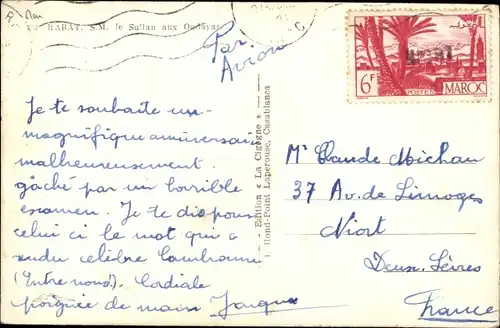 RABAT. S.M. le Sultan aux Oudayas
Par
Avion
6F
POSTES
MAROC
Je te souhaite un
magnifique anniversaire
malheureusement
gâché par un horrible
examen. Je te
celui ci le mot qui a
rendu célèbre Cambronne
(Entre nous). Cordiale
poignée de main Jacques
Edition « La Cigogne »
1 Rond-Point Lapérouse, Casablanca
Mr Claude Michau
37 Av. de Limoges
Niort
Deux-Sèvres
France